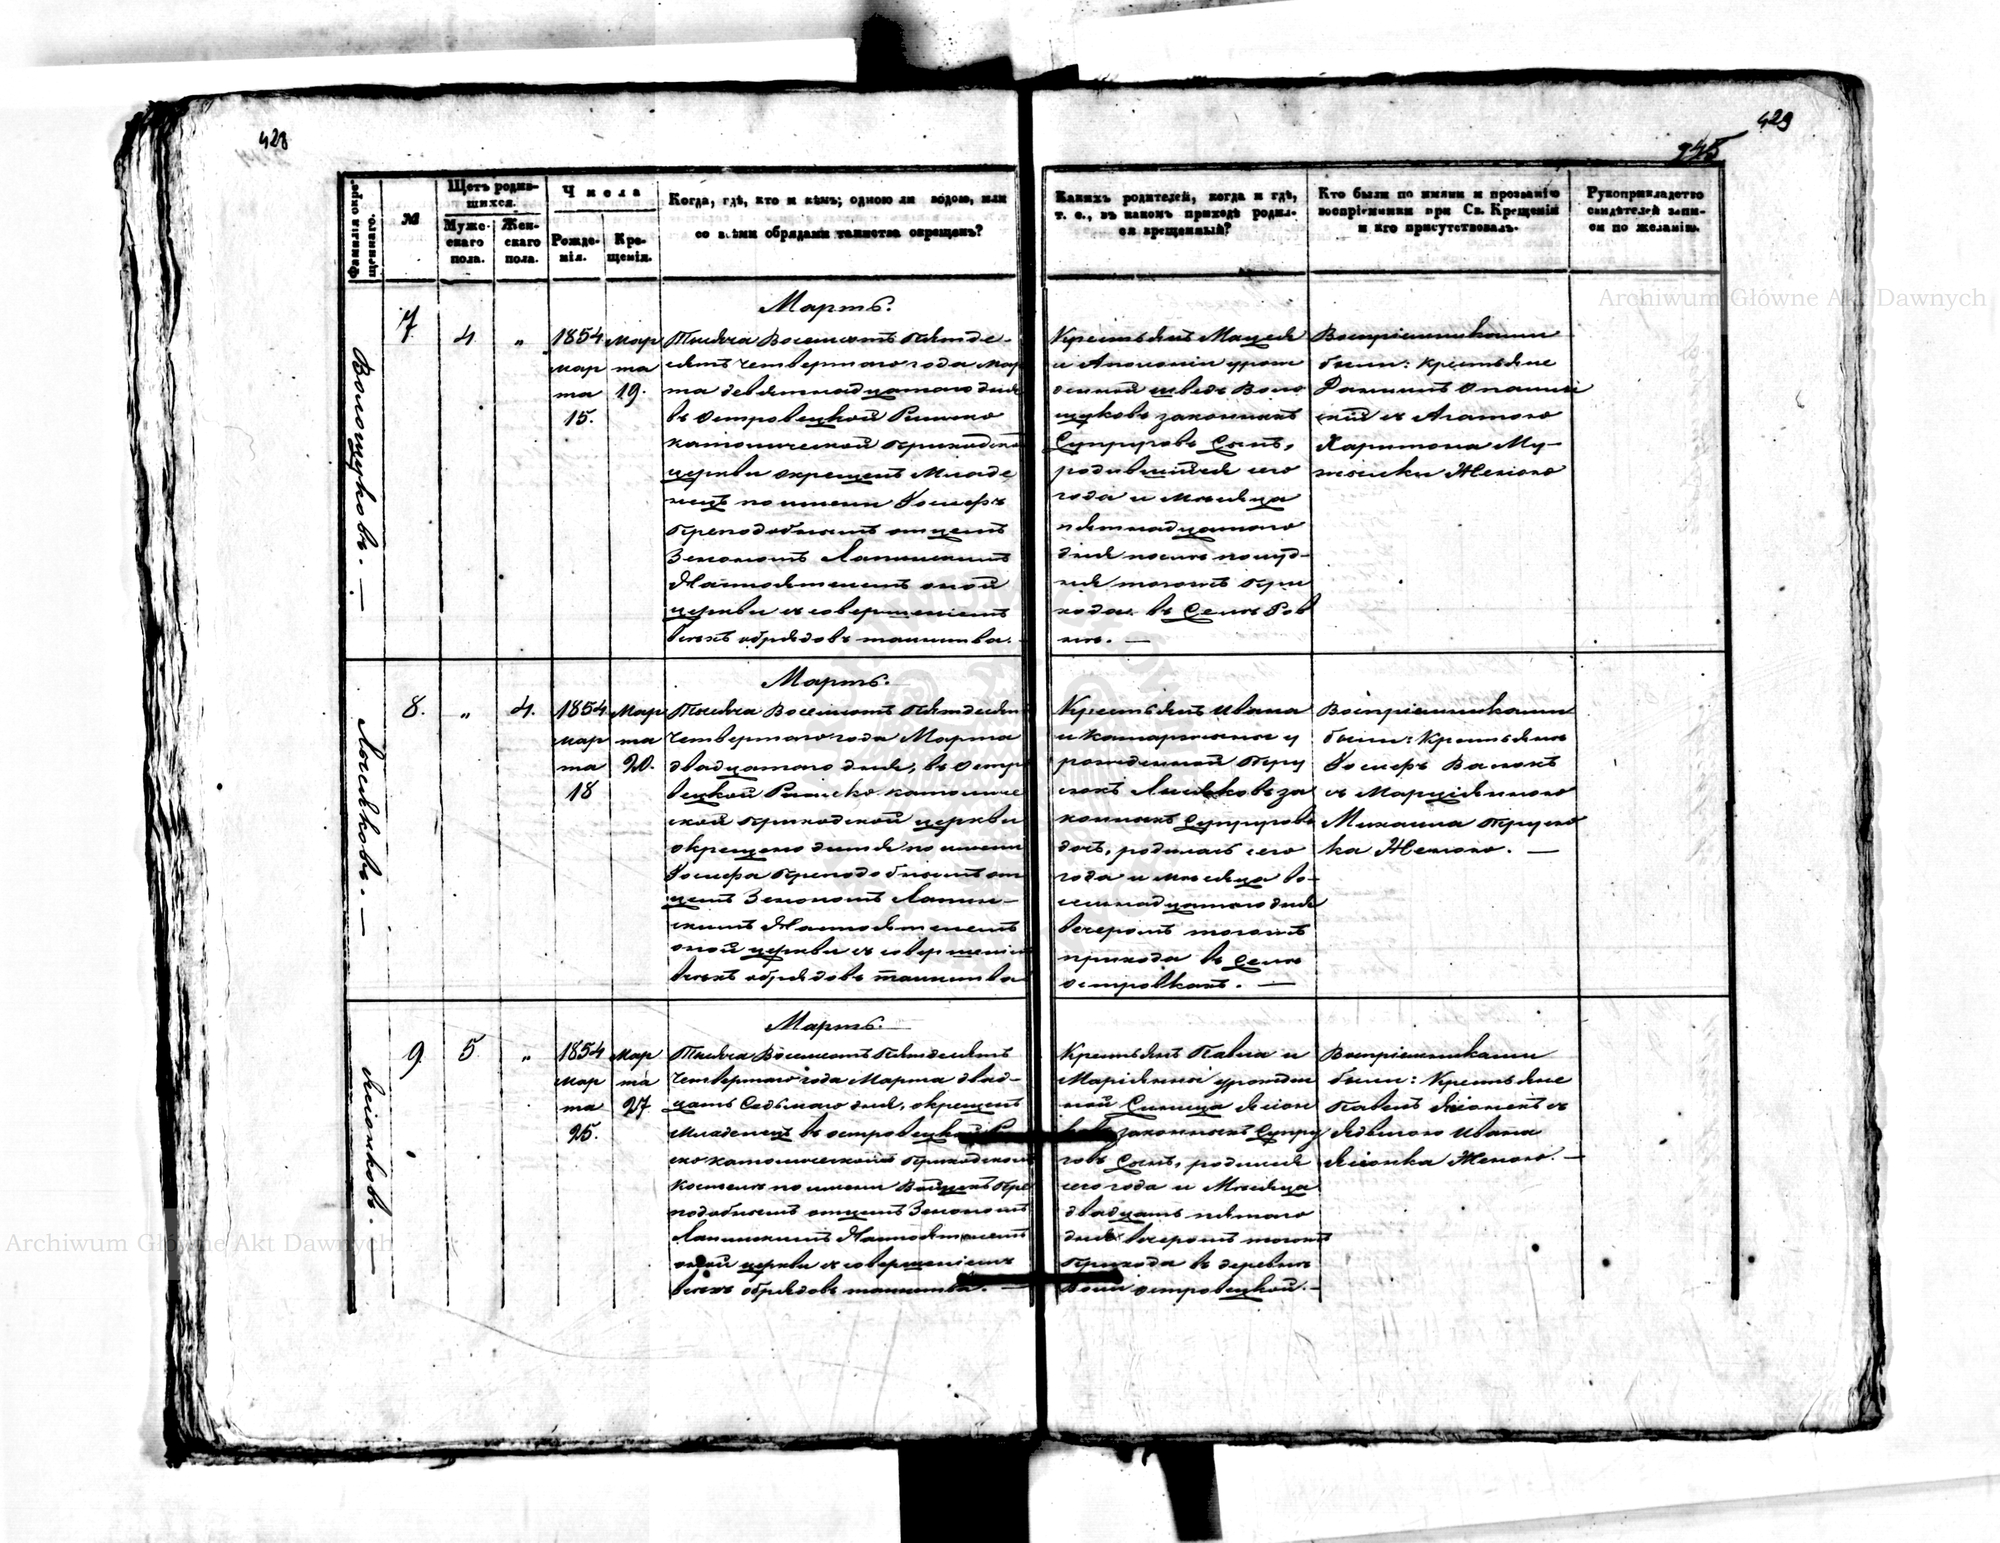 428
429
945
Фамилія окре-
щеннаго.
№
Щетъ родив-
шихся.
Муже-
скаго
пола.
Жен-
скаго
пола.
Числа
Рожде-
нія.
Кре-
щенія.
Когда, гдѣ, кто и кѣмъ; одною ли водою, или
со всѣми обрядами таинства окрещенъ?
Какихъ родителей, когда и гдѣ,
т. е., въ какомъ приходѣ родил-
ся крещенный?
Кто были по имяни и прозванію
воспріемники при Св. Крещеніи
и кто присутствовалъ.
Рукоприкладство
свидѣтелей запи-
си по желанію.
Archiwum Główne Akt Dawnych
Волощуковъ. —
7
4
"
1854
мар
та
15.
Мар
та
19.
Мартъ.
Тысяча Восемьсотъ Пятьде-
сятъ Четвертаго года Мар
та девятнадцатаго дня
въ Островецкой Римско
католической Приходской
церкви окрещенъ Младе
нецъ по имени Іосифъ
Преподобнымъ отцемъ
Зенономъ Лапинскимъ
Настоятелемъ оной
церкви съ совершеніемъ
всѣхъ обрядовъ таинства. —
Крестьянъ Мацея
и Аполоніи урож
денной шведъ Воло
щуковъ законныхъ
Супруговъ Сынъ,
родившійся сего
года и мѣсяца
пятнадцатаго
дня послѣ полуд-
ня тогожъ При
хода. въ Селѣ Ров
нѣ. —
Воспріемниками
были: Крестьяне
скій съ Агатою
Харитона Му-
Женою
Лысяковъ. —
8.
"
4.
1854
мар
та
18
Мар
та
20.
Мартъ.
Тысяча Восемьсотъ Пятьдесятъ
Четвертаго года Марта
двадцатаго дня, въ Остро
вецкой Римско католиче
ской Приходской церкви
окрещено дитя по имени
Іосифа Преподобнымъ от
цемъ Зенономъ Лапин-
скимъ Настоятелемъ
оной церкви съ совершеніемъ
всѣхъ обрядовъ таинства
Крестьянъ Ивана
и Катаржины у
рожденной Пру
сюкъ Лысяковъ за
конныхъ Супруговъ
дочь, родилась сего
года и мѣсяца во-
семнадцатаго дня
вечеромъ тогожъ
прихода въ Селѣ
Островкахъ. —
Воспріемниками
были: Крестьяне
Іосифъ Валюкъ
съ Марціянною
Михаила Прусю
ка Женою. —
Ясіонковъ. —
9
5
"
1854
мар
та
25.
Мар
та
27
Мартъ.
Тысяча Восемьсотъ Пятьдесятъ
Четвертаго года Марта двад-
цать Седьмаго дня, окрещенъ
Младенецъ въ Островецкой Рим
ско католической Приходскомъ
костелѣ по имени Войцехъ Пре
подобнымъ отцемъ Зенономъ
Лапинскимъ Настоятелемъ
оной церкви съ совершеніемъ
всѣхъ обрядовъ таинства. —
Крестьянъ Павла и
Маріянны урожден
ной Синица Ясіон
ковъ законныхъ Супру
говъ Сынъ, родился
сего года и Мѣсяца
двадцать пятаго
дня вечеромъ тогожъ
Прихода въ деревнѣ
Воли Островецкой. —
Воспріемниками
были: Крестьяне
Павелъ Ясіонекъ съ
Ядвигою Ивана
Ясіонка Женою. —
Archiwum Główne Akt Dawnych